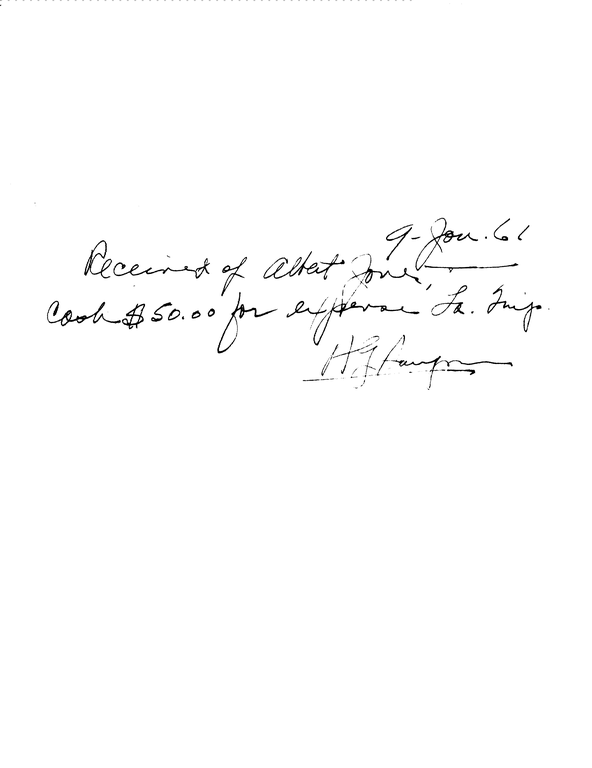 9-Jan.61
Received of Albert Jones,
Cash $50.00 for expense La. Trip.
H.G.